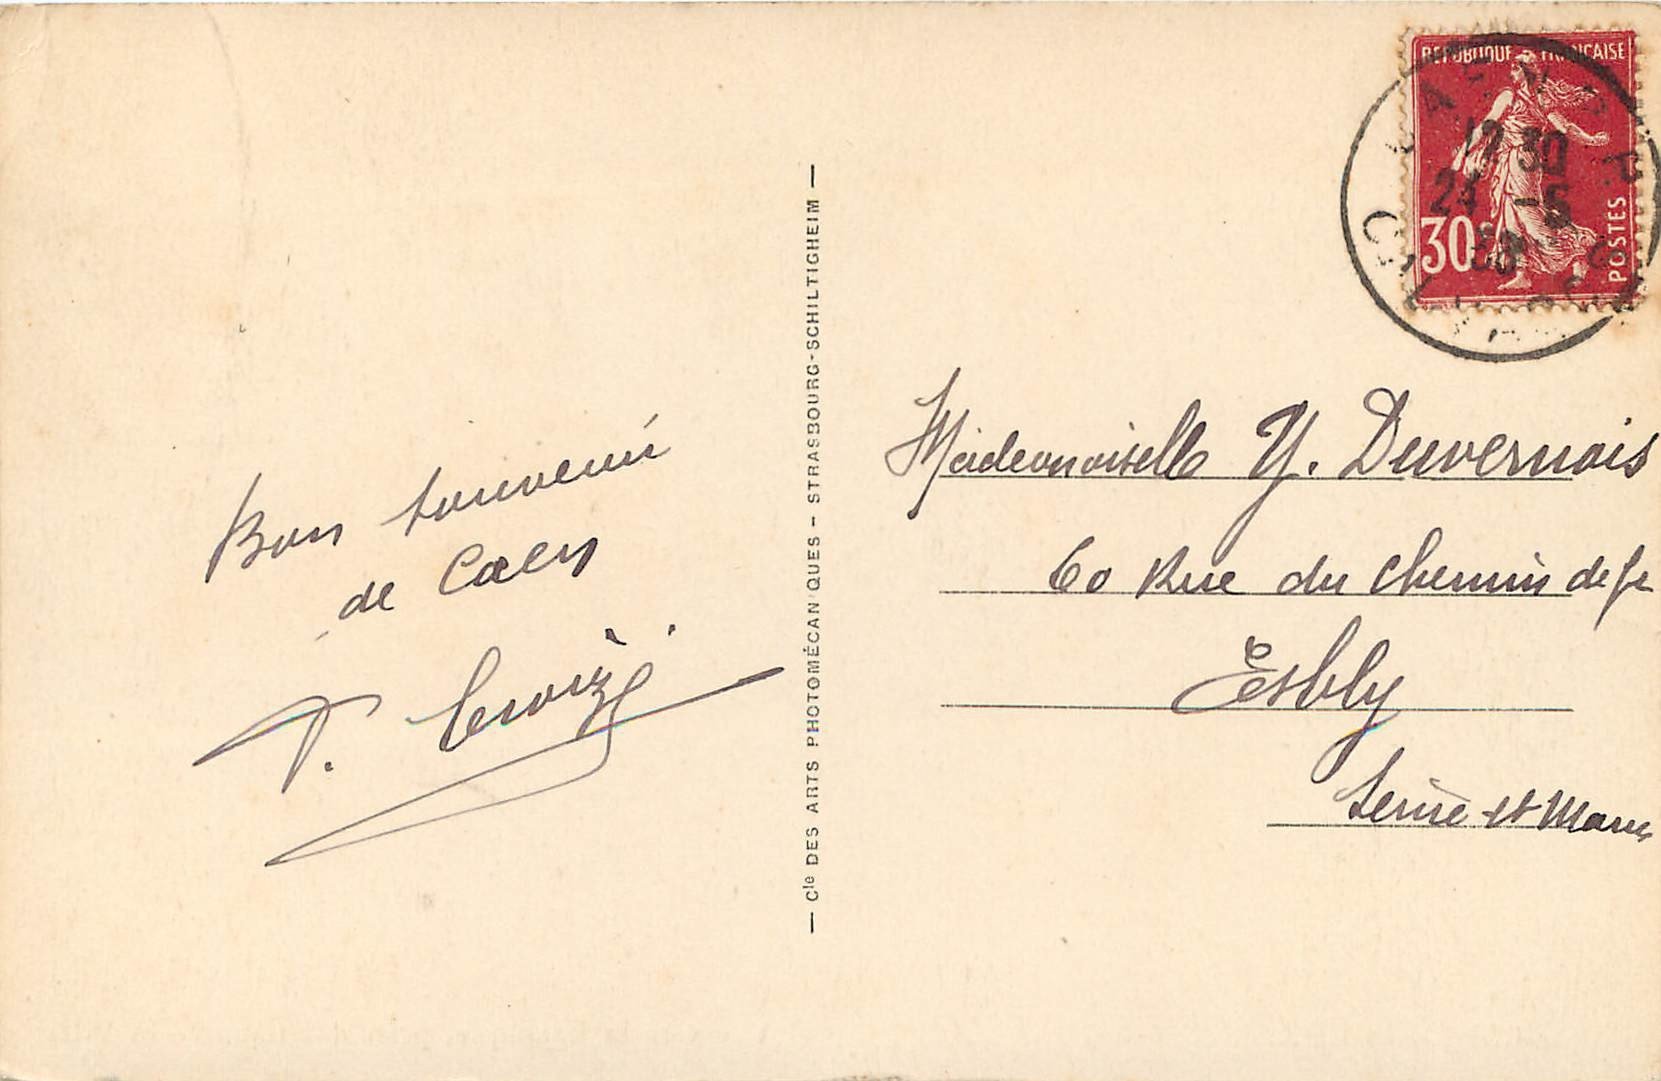 Bon souvenir
de Caen
Cie DES ARTS PHOTOMÉCANIQUES - STRASBOURG-SCHILTIGHEIM
REPUBLIQUE FRANÇAISE
30c
POSTES
CAEN
17 30
-5
CALVADOS
Mademoiselle Y. Duvernois
60 Rue du Chemin de fe
Esbly
Seine et Marne